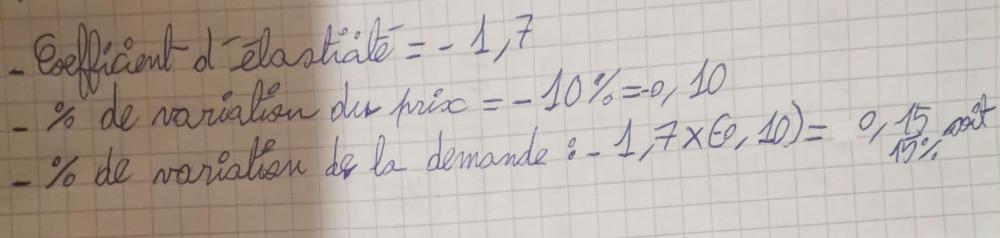 - Coefficient d'élasticité = - 1,7
- % de variation du prix = - 10% = -0,10
- % de variation de la demande : - 1,7 x (-0,10) = 0,15 soit
15%